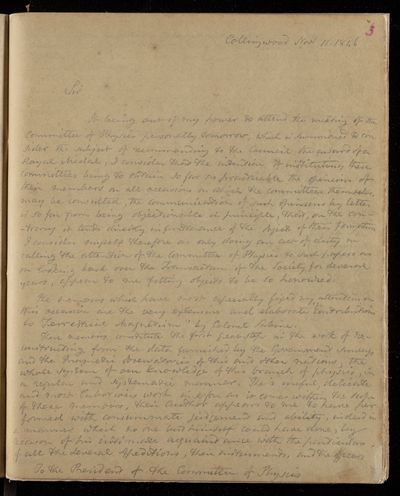 3
Collingwood Nov 11. 1846
Sir
It being out of my power to attend the meeting of the
Committee of Physics personally tomorrow, which is summoned to con
sider the subject of recommending to the Council the award of a
Royal Medal, I consider that the intention of instituting these
committees being to obtain so far as practicable the opinions of
their members on all occasions on which the Committees themselves
may be consulted, the communication of such opinions by letter
is so far from being objectionable in principle, that, on the con-
trary it tends directly in furtherance of the object of their formation
I consider myself therefore as only doing an act of duty in
calling the attention of the Committee of Physics to such papers as
on looking back over the Transactions of the Society for several
years, appear to me fitting objects to be so honoured.
The memoirs which have most especially fixed my attention on
this occasion are the very extensive and elaborate Contributions
to Terrestrial Magnetism" by Colonel Sabine.
These memoirs constitute the first great step in the work of
constructing from the data furnished by the Government Surveys
and the Magnetic observatories of this and other nations, the
whole system of our knowledge of this branch of physics, in
a regular and systematic manner. This useful, delicate
and most laborious work
of these memoirs, their author appears to me to have per
formed with consummate judgement and ability, indeed in a
manner which no one but himself could have done, by
reason of his intimate acquaintance with the particulars
of all the several Expeditions, their instruments, and the
To the President of the Committee of Physics